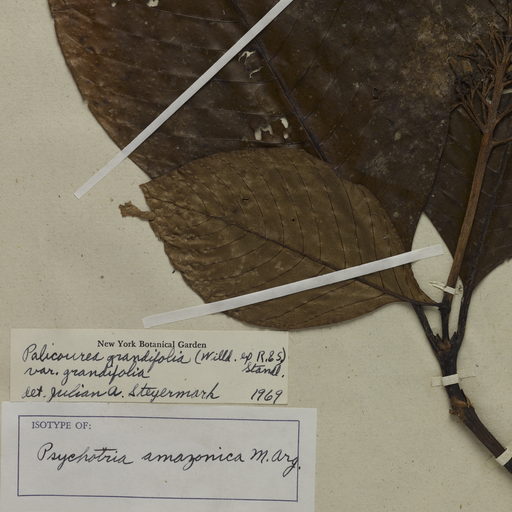 New York Botanical Garden
Palicourea grandifolia (Willd. ep R.&S)
var. grandifolia Standl.
det. Julian A. Steyermark 1969
ISOTYPE OF:
Psychotria amazonica M. Arg.